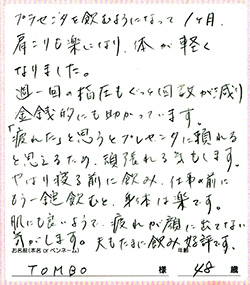 プラセンタを飲むようになって1ヶ月.
肩こりも楽になり、体が軽く
なりました。
週一回の指圧もぐっと回数が減り
金銭的にも助かっています。
「疲れた」と思うとプラセンタに頼れる
と思えるため、頑張れる気もします。
やはり寝る前に飲み、仕事の前に
もう一錠飲むと、身体は楽です。
肌にも良いようで、疲れが顔に出てない
気がします。夫もたまに飲み好評です。
お名前(本名 or ペンネーム) 年齢
TOMBO 様 48 歳